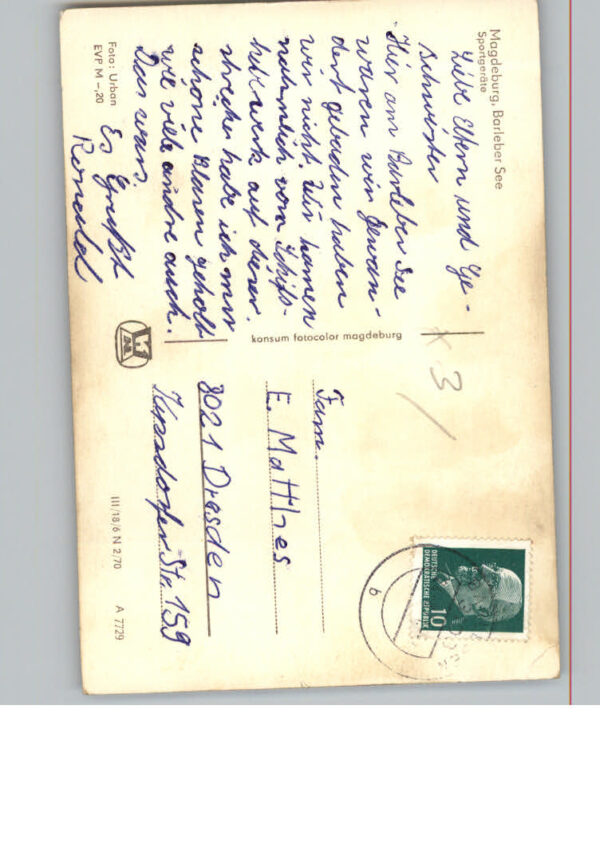 Magdeburg, Barleber See
Sportgeräte
Liebe Eltern und Ge-
schwister
Hier am Barleber See
waren wir gewan-
dert gebaden haben
wir nicht. Wir kamen
nähmlich vom Schifs-
hebewerk auf dieser
strecke habe ich mir
schöne Blasen geholt
wie viele andre auch.
Das wars.
Es Grüßt
Ronald
Foto: Urban
EVP M –,20
konsum fotocolor magdeburg
x 3 /
Fam.
E. Matthes
8021 Dresden
Kipsdorfer Str. 159
III/18/6 N 2/70 A 7729
DEUTSCHE
DEMOKRATISCHE REPUBLIK
10
b